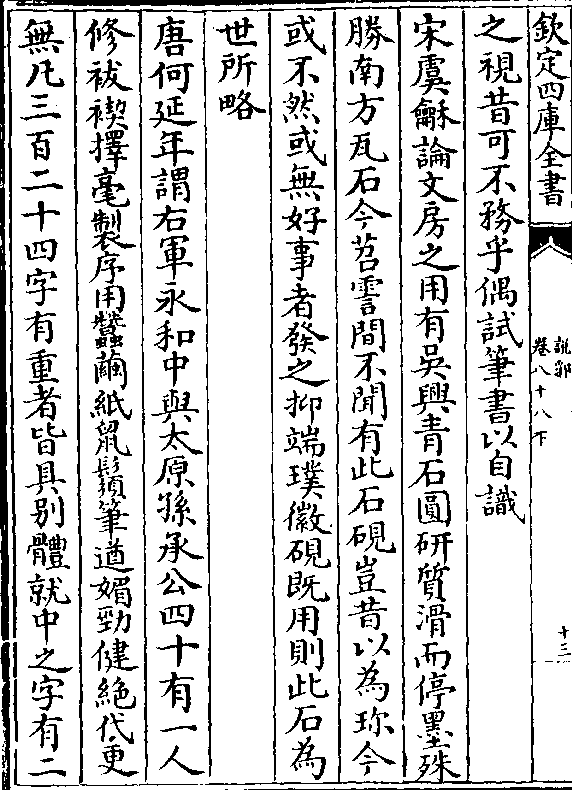 欽定四庫全書
說郛
卷八十八下
十三
之視昔可不務乎偶試筆書以自識
宋虞龢論文房之用有吳興青石圓研質滑而停墨殊
勝南方瓦石今苕霅間不聞有此石硯豈昔以為珎今
或不然或無好事者發之抑端璞徽硯既用則此石為
世所略
唐何延年謂右軍永和中與太原孫承公四十有一人
修祓禊擇毫製序用蠶繭紙鼠鬚筆遒媚勁健絶代更
無凡三百二十四字有重者皆具别體就中之字有二